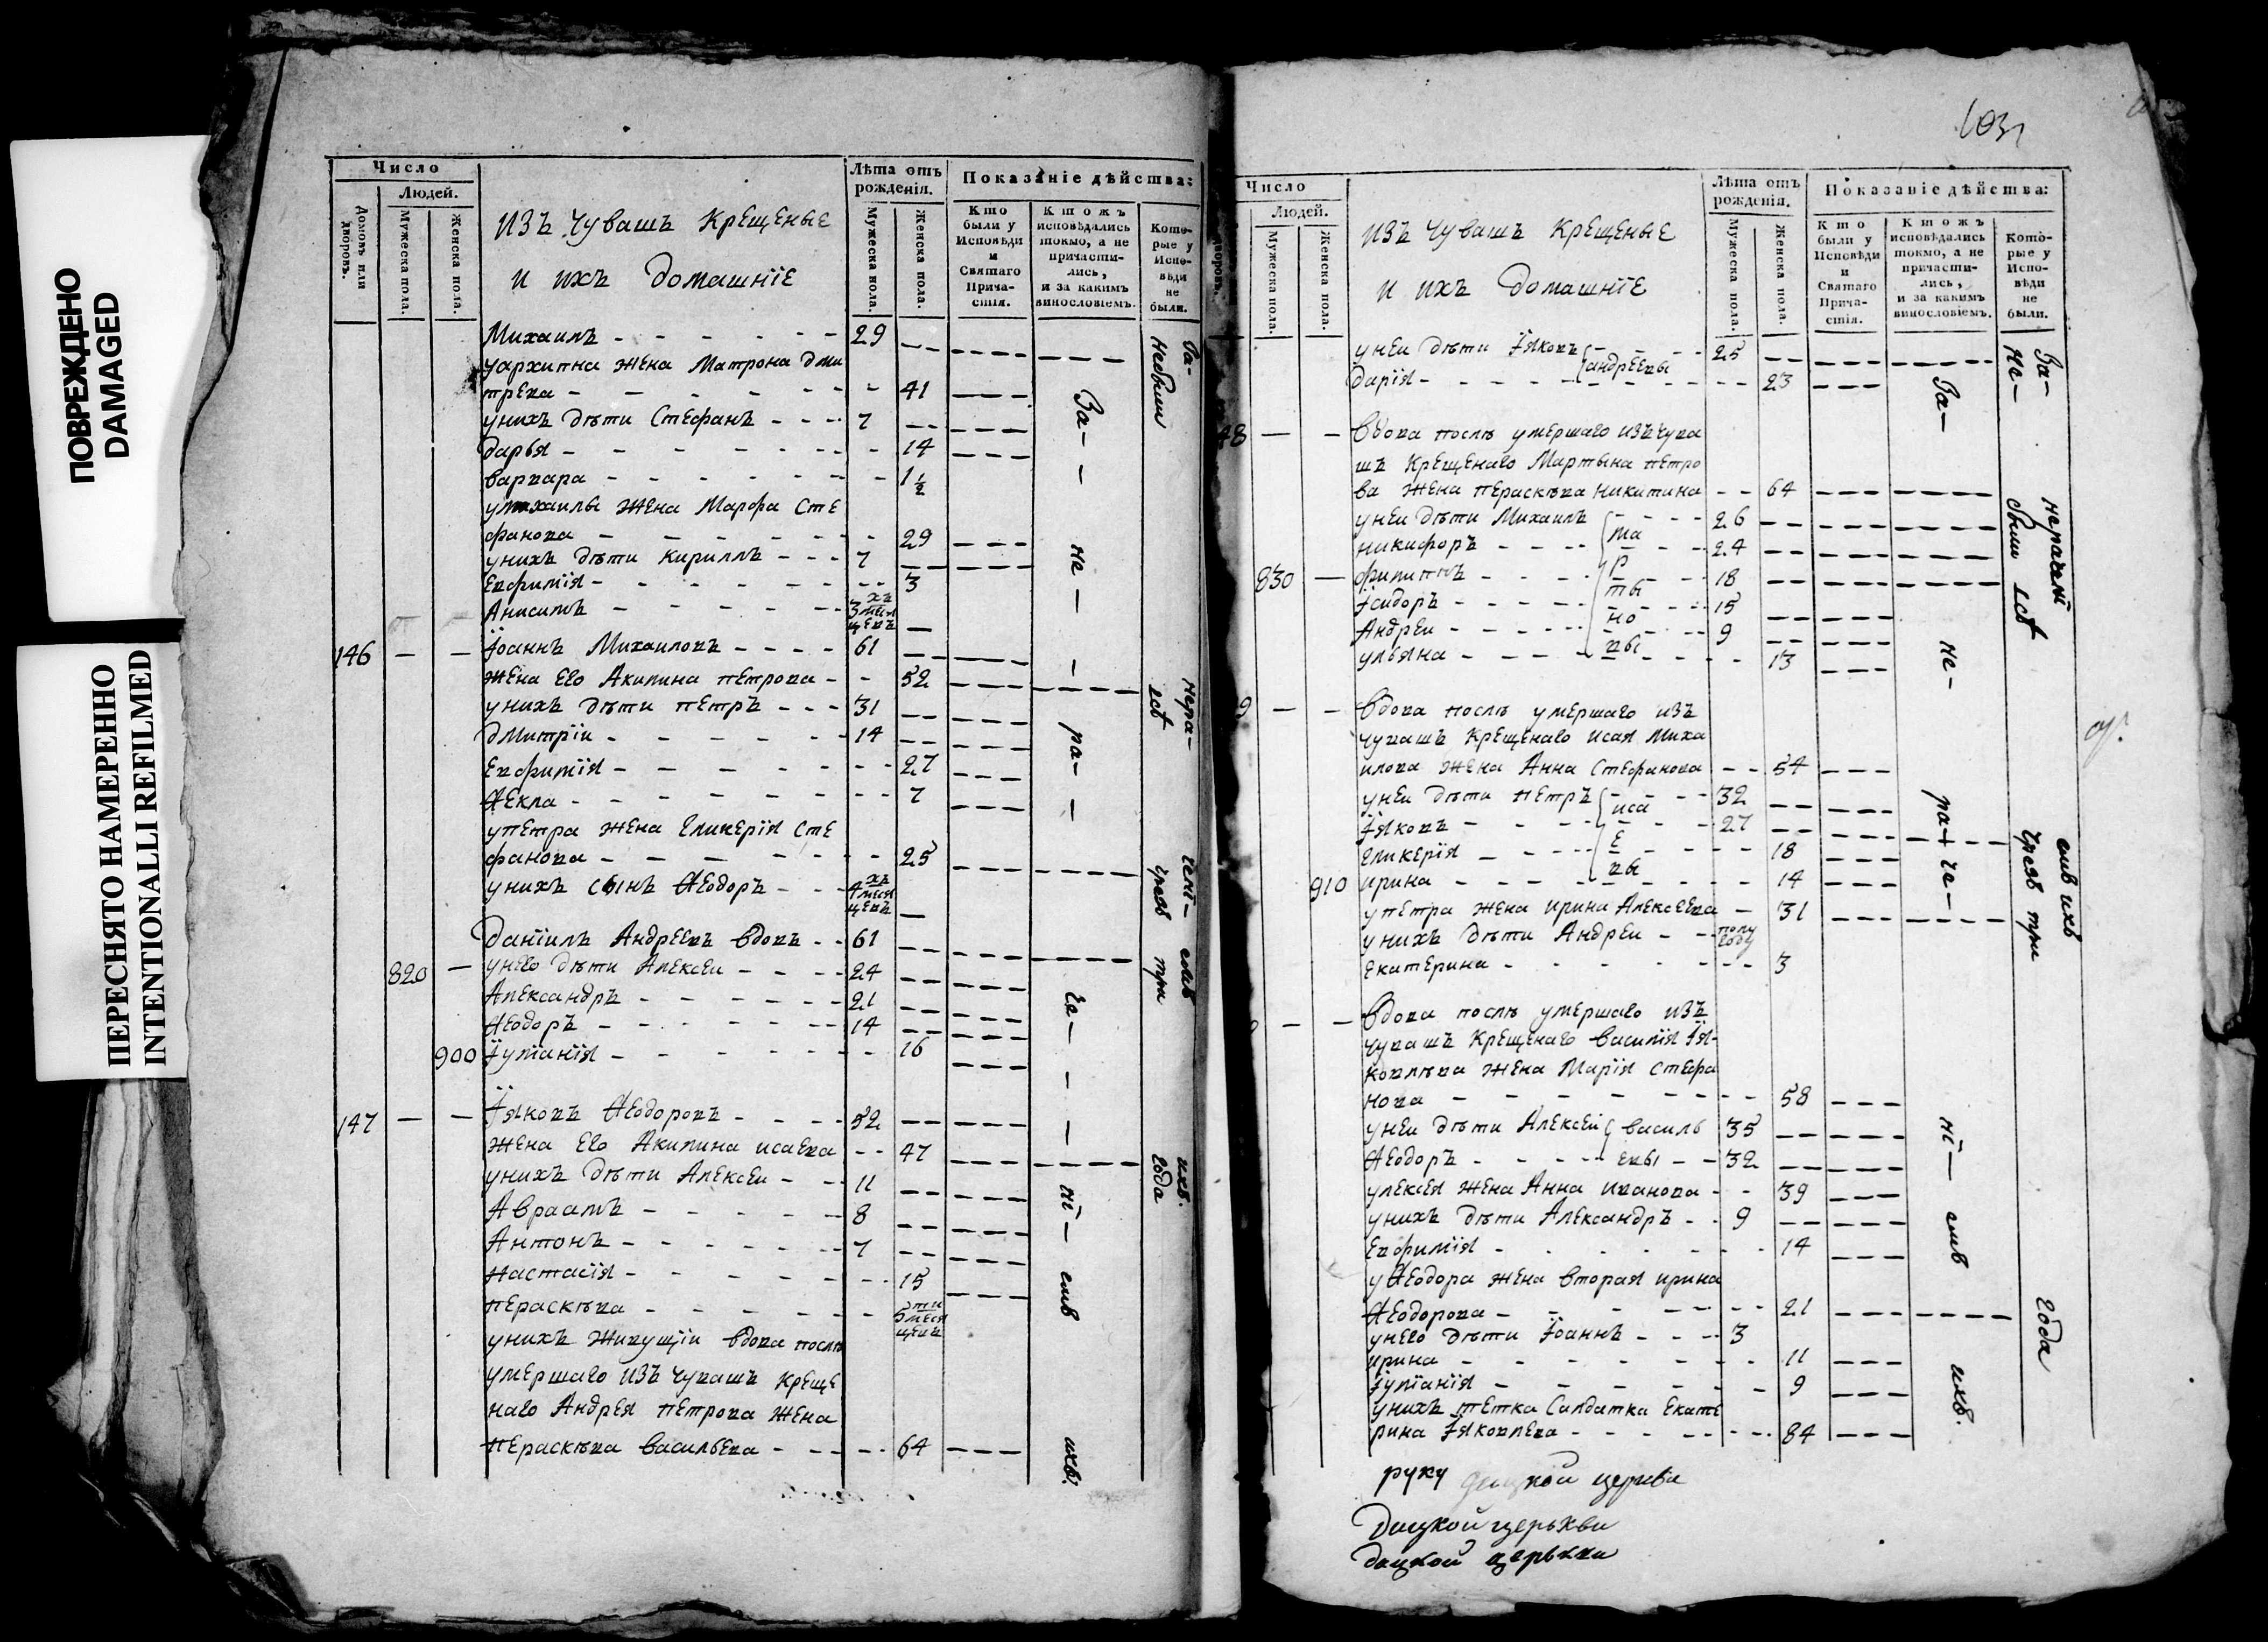 ПОВРЕЖДЕНО
DAMAGED
ПЕРЕСНЯТО НАМЕРЕННО
INTENTIONALLI REFILMED
Число
Людей.
Домовъ или дворовъ.
Мужеска пола.
Женска пола.
изъ чувашъ крещеные
и ихъ домашнїе
Лѣта отъ рожденія.
Мужеска пола.
Женска пола.
Показаніе дѣйства:
Кто были у Исповѣди и Святаго Причастія.
Ктожъ исповѣдались токмо, а не причастились, и за какимъ винословіемъ.
Которые у Исповѣди не были.
Михаилъ 29
уархипа жена Матрона дми
трева 41
унихъ дѣти Стефанъ 7
дарья 14
варвара 1½
умихаилы жена Марфа Сте
фанова 29
унихъ дѣти кириллъ 7
Евфимїя 3
Анисимъ 3 хъ месяцевъ
146 Їоаннъ Михаиловъ 61
жена его Акилина петрова 52
унихъ дѣти петръ 31
дмитрїи 14
Евфимїя 27
Ѳекла 7
упетра жена Гликерїя Сте
фанова 25
унихъ сынъ Ѳеодоръ 4 хъ месяцевъ
Данїилъ Андреевъ вдовъ 61
820 унего дѣти Алексеи 24
Александръ 21
Ѳеодоръ 14
900 Їулїанїя 16
147 Їяковъ Ѳеодоровъ 52
жена его Акилина исаева 47
унихъ дѣти Алексеи 11
Авраамъ 8
Антонъ 7
настасїя 15
пераскева 5 ти месяцевъ
унихъ живущїи вдова послѣ
умершаго изъ чувашъ креще
наго Андрея петрова жена
пераскева васильева 64
За не ра че нї емъ ихъ.
За нера ченї емъ ихъ.
небыли есть чрезъ три года
103
Число
Людей.
Мужеска пола.
Женска пола.
изъ чувашъ крещеные
и ихъ домашнїе
Лѣта отъ рожденія.
Мужеска пола.
Женска пола.
Показаніе дѣйства:
Кто были у Исповѣди и Святаго Причастія.
Ктожъ исповѣдались токмо, а не причастились, и за какимъ винословіемъ.
Которые у Исповѣди не были.
унеи дѣти Їяковъ андреевы 25
дарїя 23
48 вдова послѣ умершаго изъ чува
шъ крещенаго Мартына петро
ва жена пераскева никитина 64
унеи дѣти Михаилъ мартыновы 26
никифоръ 24
830 филиппъ 18
Їсидоръ 15
Андреи 9
ульяна 13
9 вдова послѣ умершаго изъ
чувашъ крещенаго исая миха
илова жена Анна Стефанова 54
унеи дѣти петръ исаевы 32
Їяковъ 27
гликерїя 18
910 ирина 14
упетра жена ирина Алексеева 31
унихъ дѣти Андреи полу году
екатерина 3
вдова послѣ умершаго изъ
чувашъ крещенаго василїя Їя-
ковлева жена Марїя стефа
нова 58
унеи дѣти Алексеи васильевы 35
Ѳеодоръ 32
улексея жена Анна иванова 39
унихъ дѣти Александръ 9
Евфимїя 14
уѲеодора жена вторая ирина
Ѳеодорова 21
унего дѣти Їоаннъ 3
ирина 11
Їулїанїя 9
унихъ тетка салдатка екате
рина Їяковлева 84
За не ра че нї емъ ихъ.
За нераченї емъ ихъ
не были есть чрезъ три года
руку церкви
Дацкой церькви
дацкой церькви